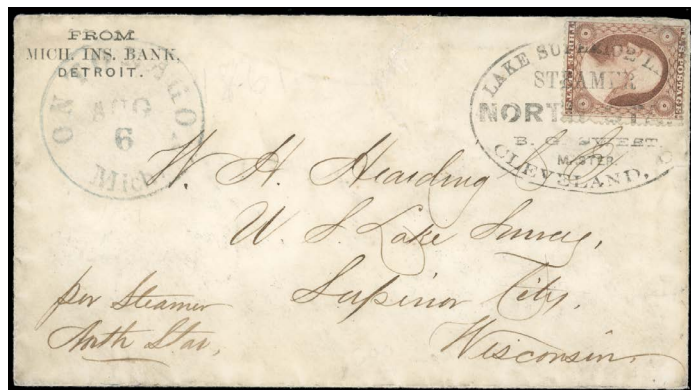 FROM
MICH. INS. BANK,
DETROIT.
ONTONAGON
AUG
6
Mich
LAKE SUPERIOR LINE
STEAMER
NORTH STAR
B. G. SWEET
MASTER
CLEVELAND, O
W. H. Hearding
U. S. Lake Survey,
Superior City,
Wisconsin.
per Steamer
North Star,